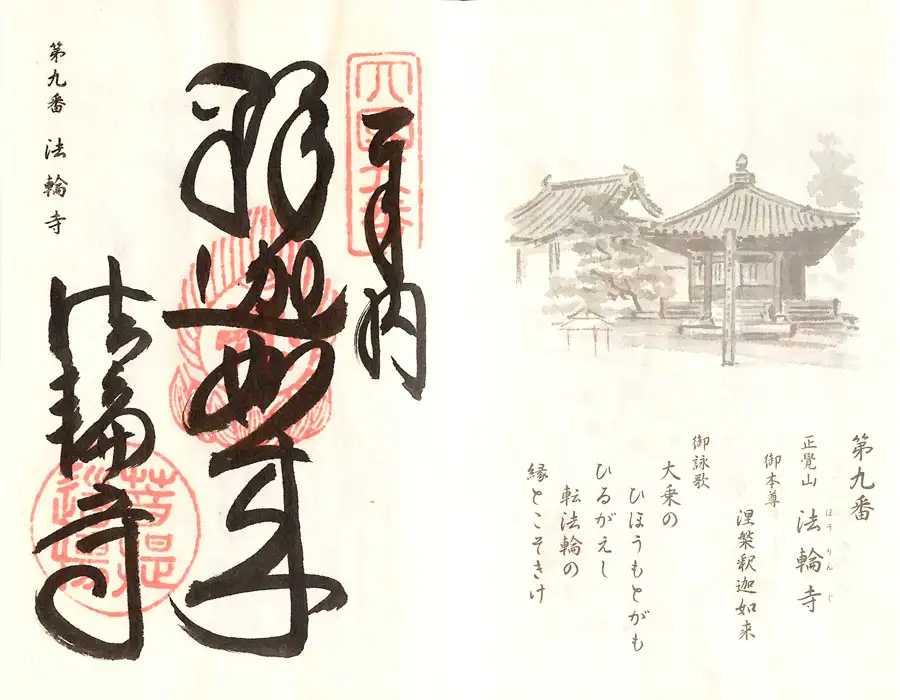 第九番
正覺山 法輪寺
ほうりんじ
御本尊
涅槃釈迦如来
御詠歌
大乗の
ひほうもとがも
ひるがえし
転法輪の
縁とこそきけ
奉納
釋迦如来
法輪寺
菩提道場
第九番 法輪寺